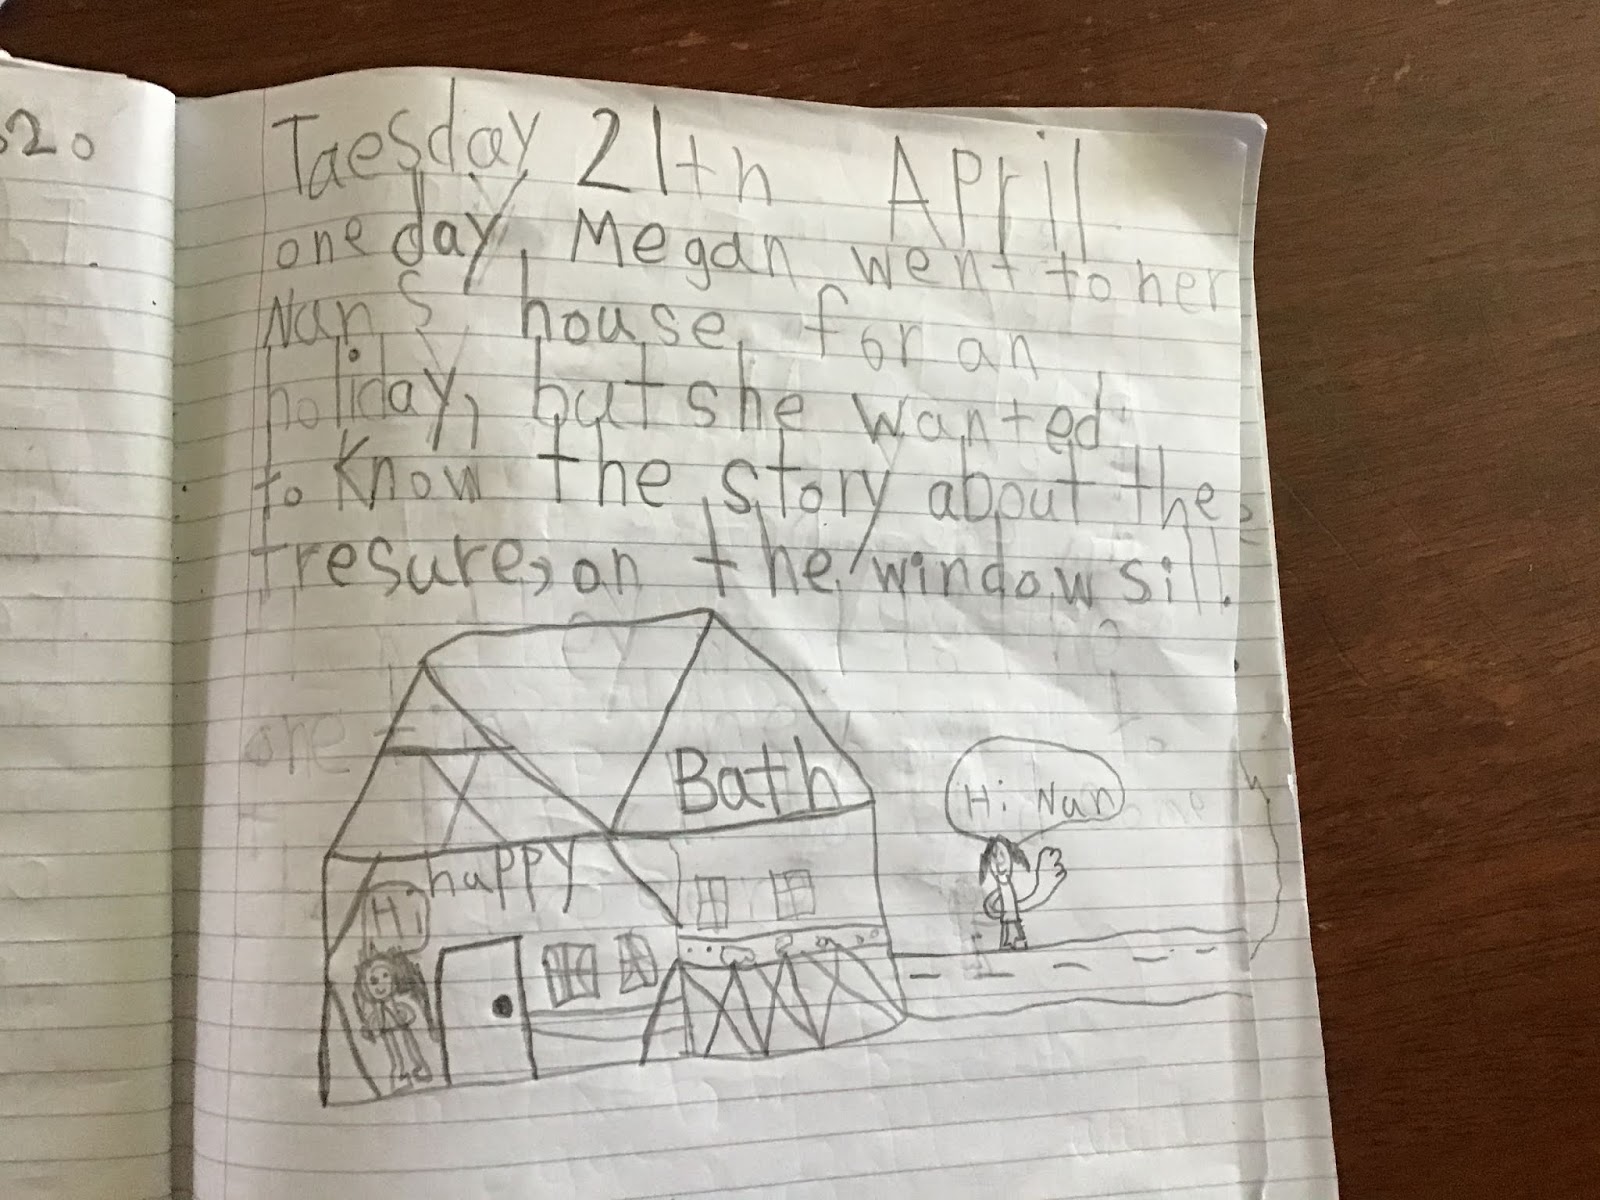 20
Taesday 21th April
one day, Megan went to her
Nan's house, for an
holiday, but she wanted
to Know the story about the
tresure, on the windowsill.
Bath
Hi Nan
happy
Hi
one